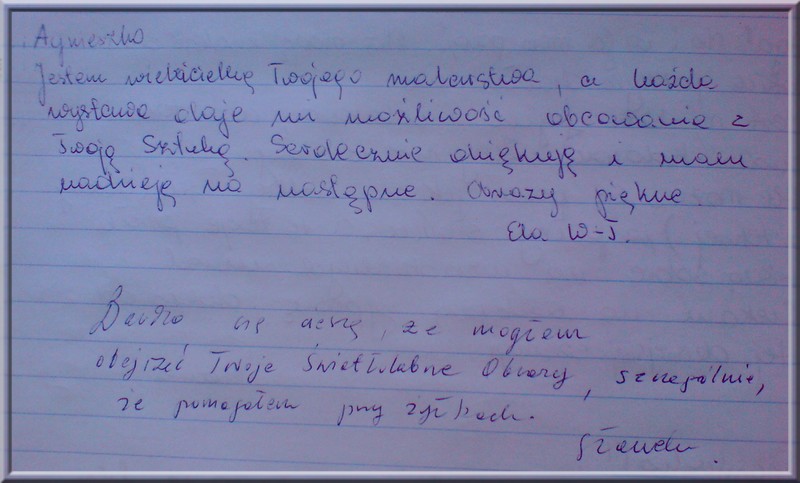 Agnieszko
Jestem wielbicielką Twojego malarstwa, a każda
wystawa daje mi możliwość obcowania z
Twoją Sztuką. Serdecznie dziękuję i mam
nadzieję na następne. Obrazy piękne.
Ela W-J.
Bardzo się cieszę, że mogłem
obejrzeć Twoje Świetlabne Obrazy, szczególnie,
że pomagałem przy